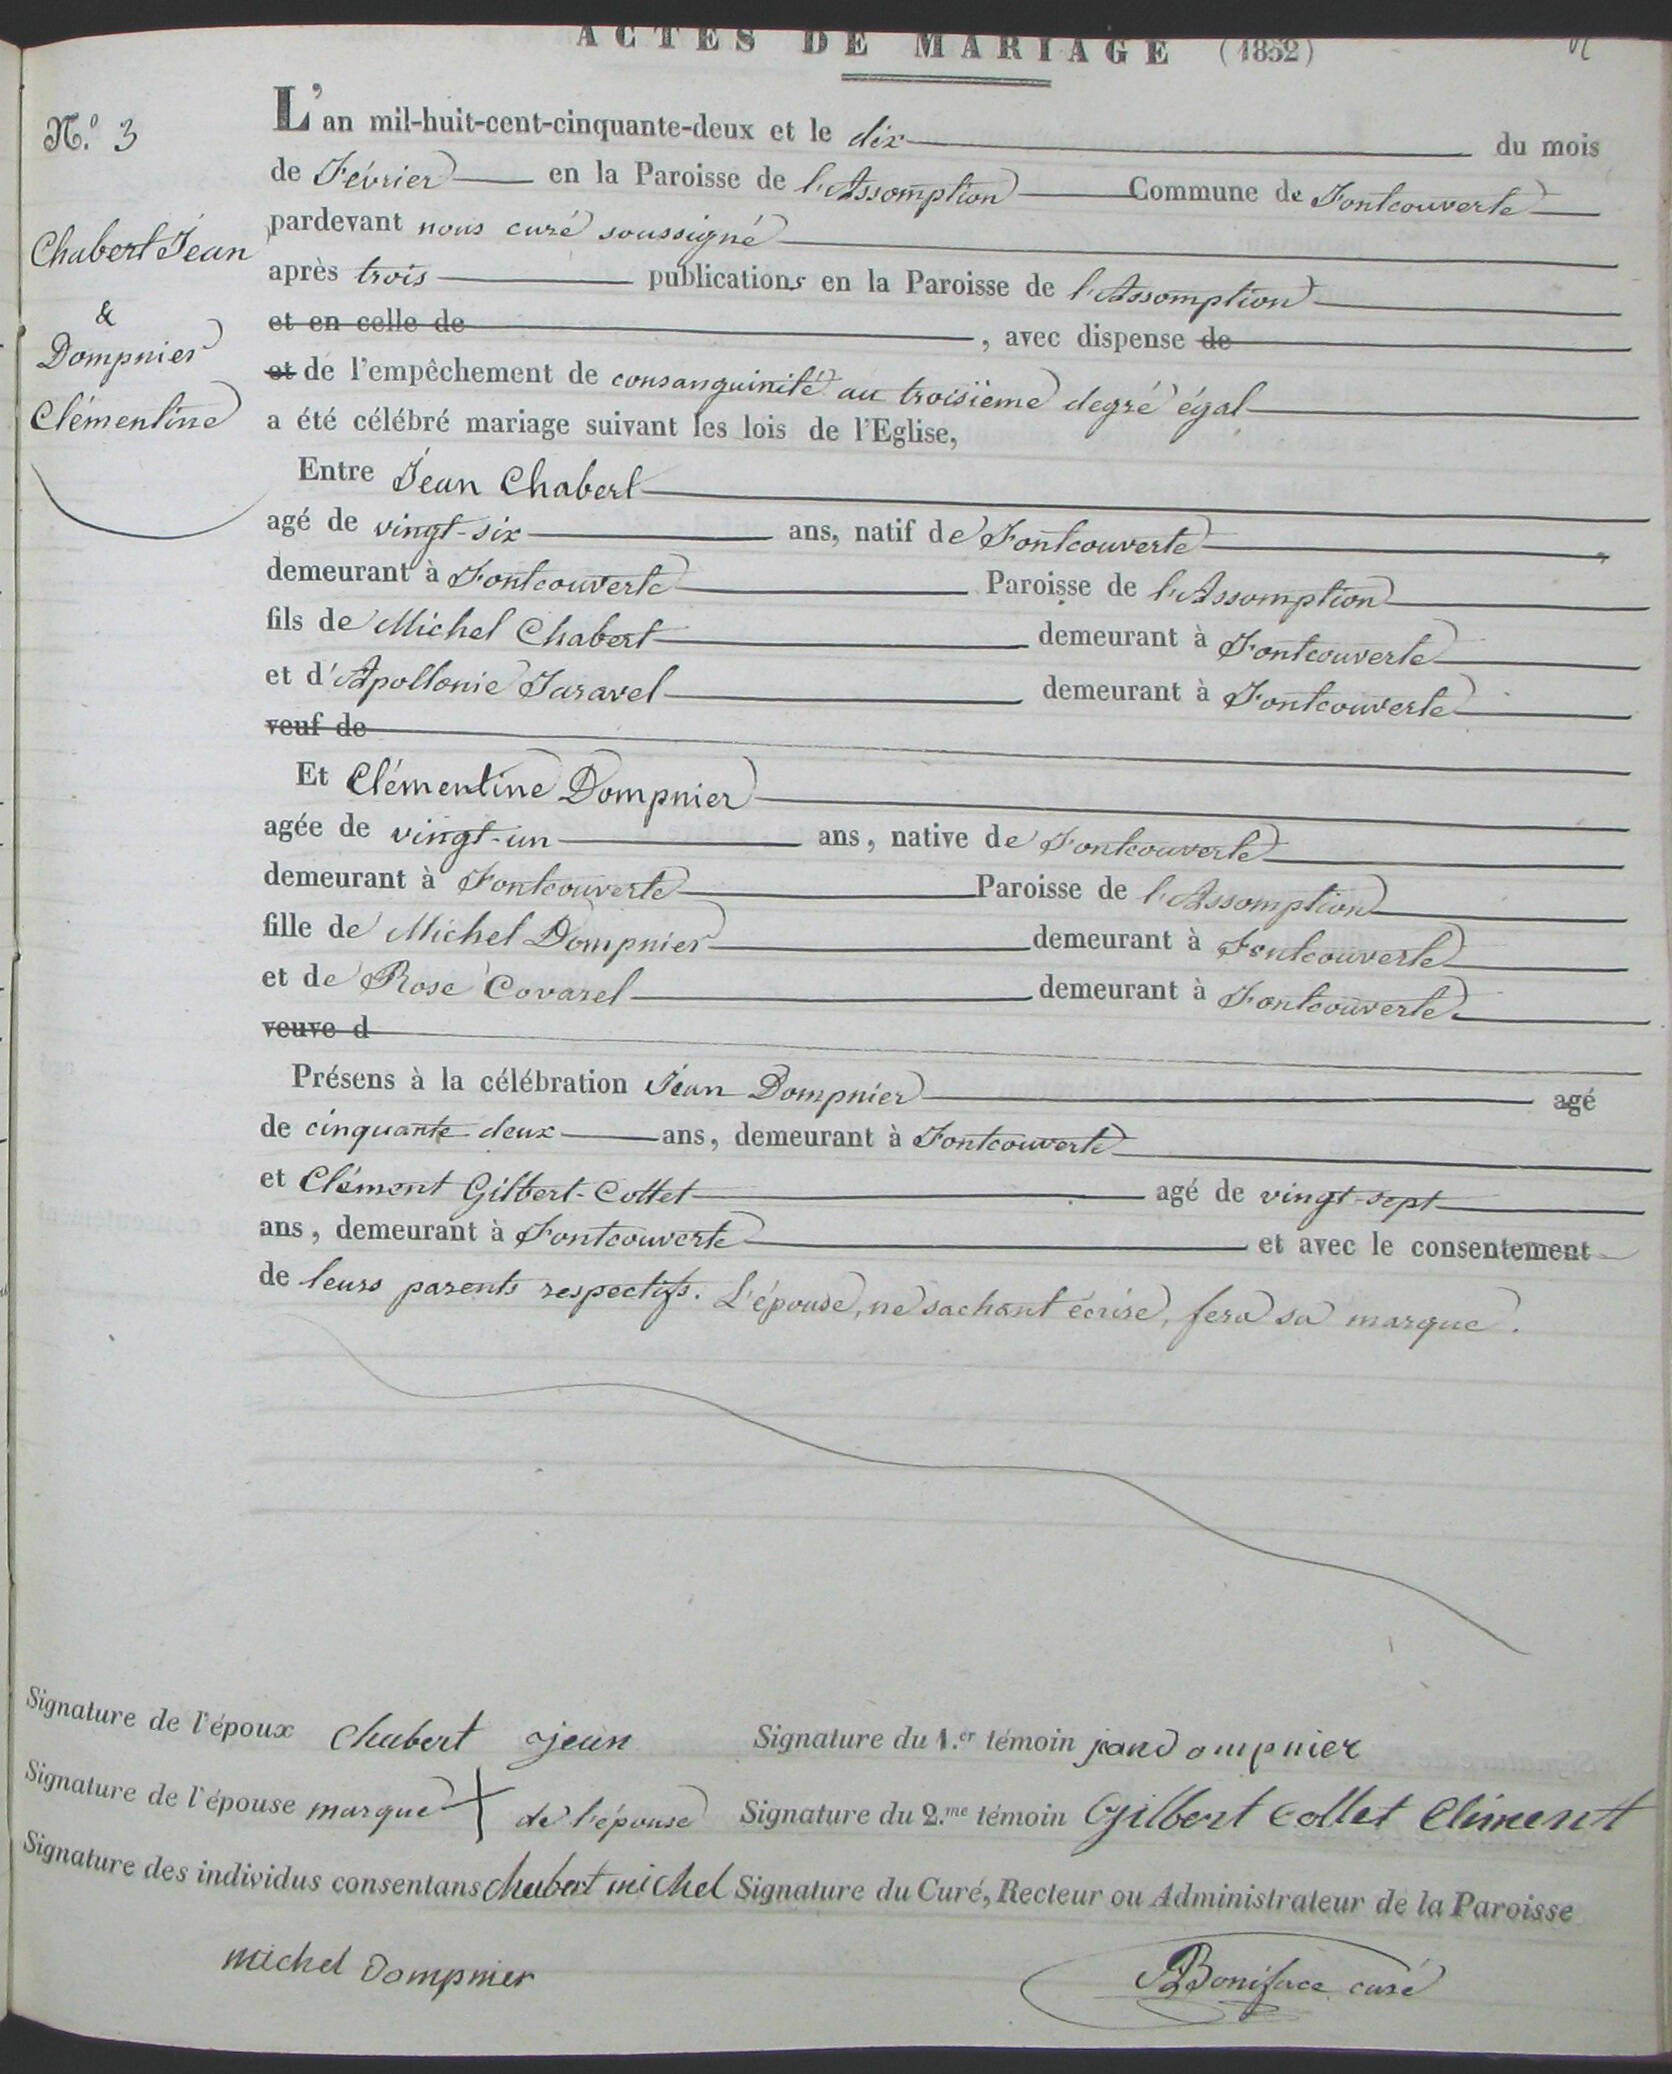 ACTES DE MARIAGE (1852)
N.º 3
Chabert Jean
&
Dompnier
Clémentine
L'an mil-huit-cent-cinquante-deux et le dix du mois
de Février en la Paroisse de l'Assomption Commune de Fontcouverte
pardevant nous curé soussigné
après trois publications en la Paroisse de l'Assomption
et en celle de , avec dispense de
et de l'empêchement de consanguinité au troisième degré égal
a été célébré mariage suivant les lois de l'Eglise,
Entre Jean Chabert
agé de vingt-six ans, natif de Fontcouverte
demeurant à Fontcouverte Paroisse de l'Assomption
fils de Michel Chabert demeurant à Fontcouverte
et d'Apollonie Taravel demeurant à Fontcouverte
veuf de
Et Clémentine Dompnier
agée de vingt-un ans, native de Fontcouverte
demeurant à Fontcouverte Paroisse de l'Assomption
fille de Michel Dompnier demeurant à Fontcouverte
et de Rose Covarel demeurant à Fontcouverte
veuve d
Présens à la célébration Jean Dompnier agé
de cinquante deux ans, demeurant à Fontcouverte
et Clément Gilbert-Collet agé de vingt-sept
ans, demeurant à Fontcouverte et avec le consentement
de leurs parents respectifs. L'épouse, ne sachant écrire, fera sa marque.
Signature de l'époux Chabert jean Signature du 1.er témoin jean dompnier
Signature de l'épouse marque + de l'épouse Signature du 2.me témoin Gilbert Collet Climent
Signature des individus consentans chabert michel Signature du Curé, Recteur ou Administrateur de la Paroisse
michel dompnier Boniface curé